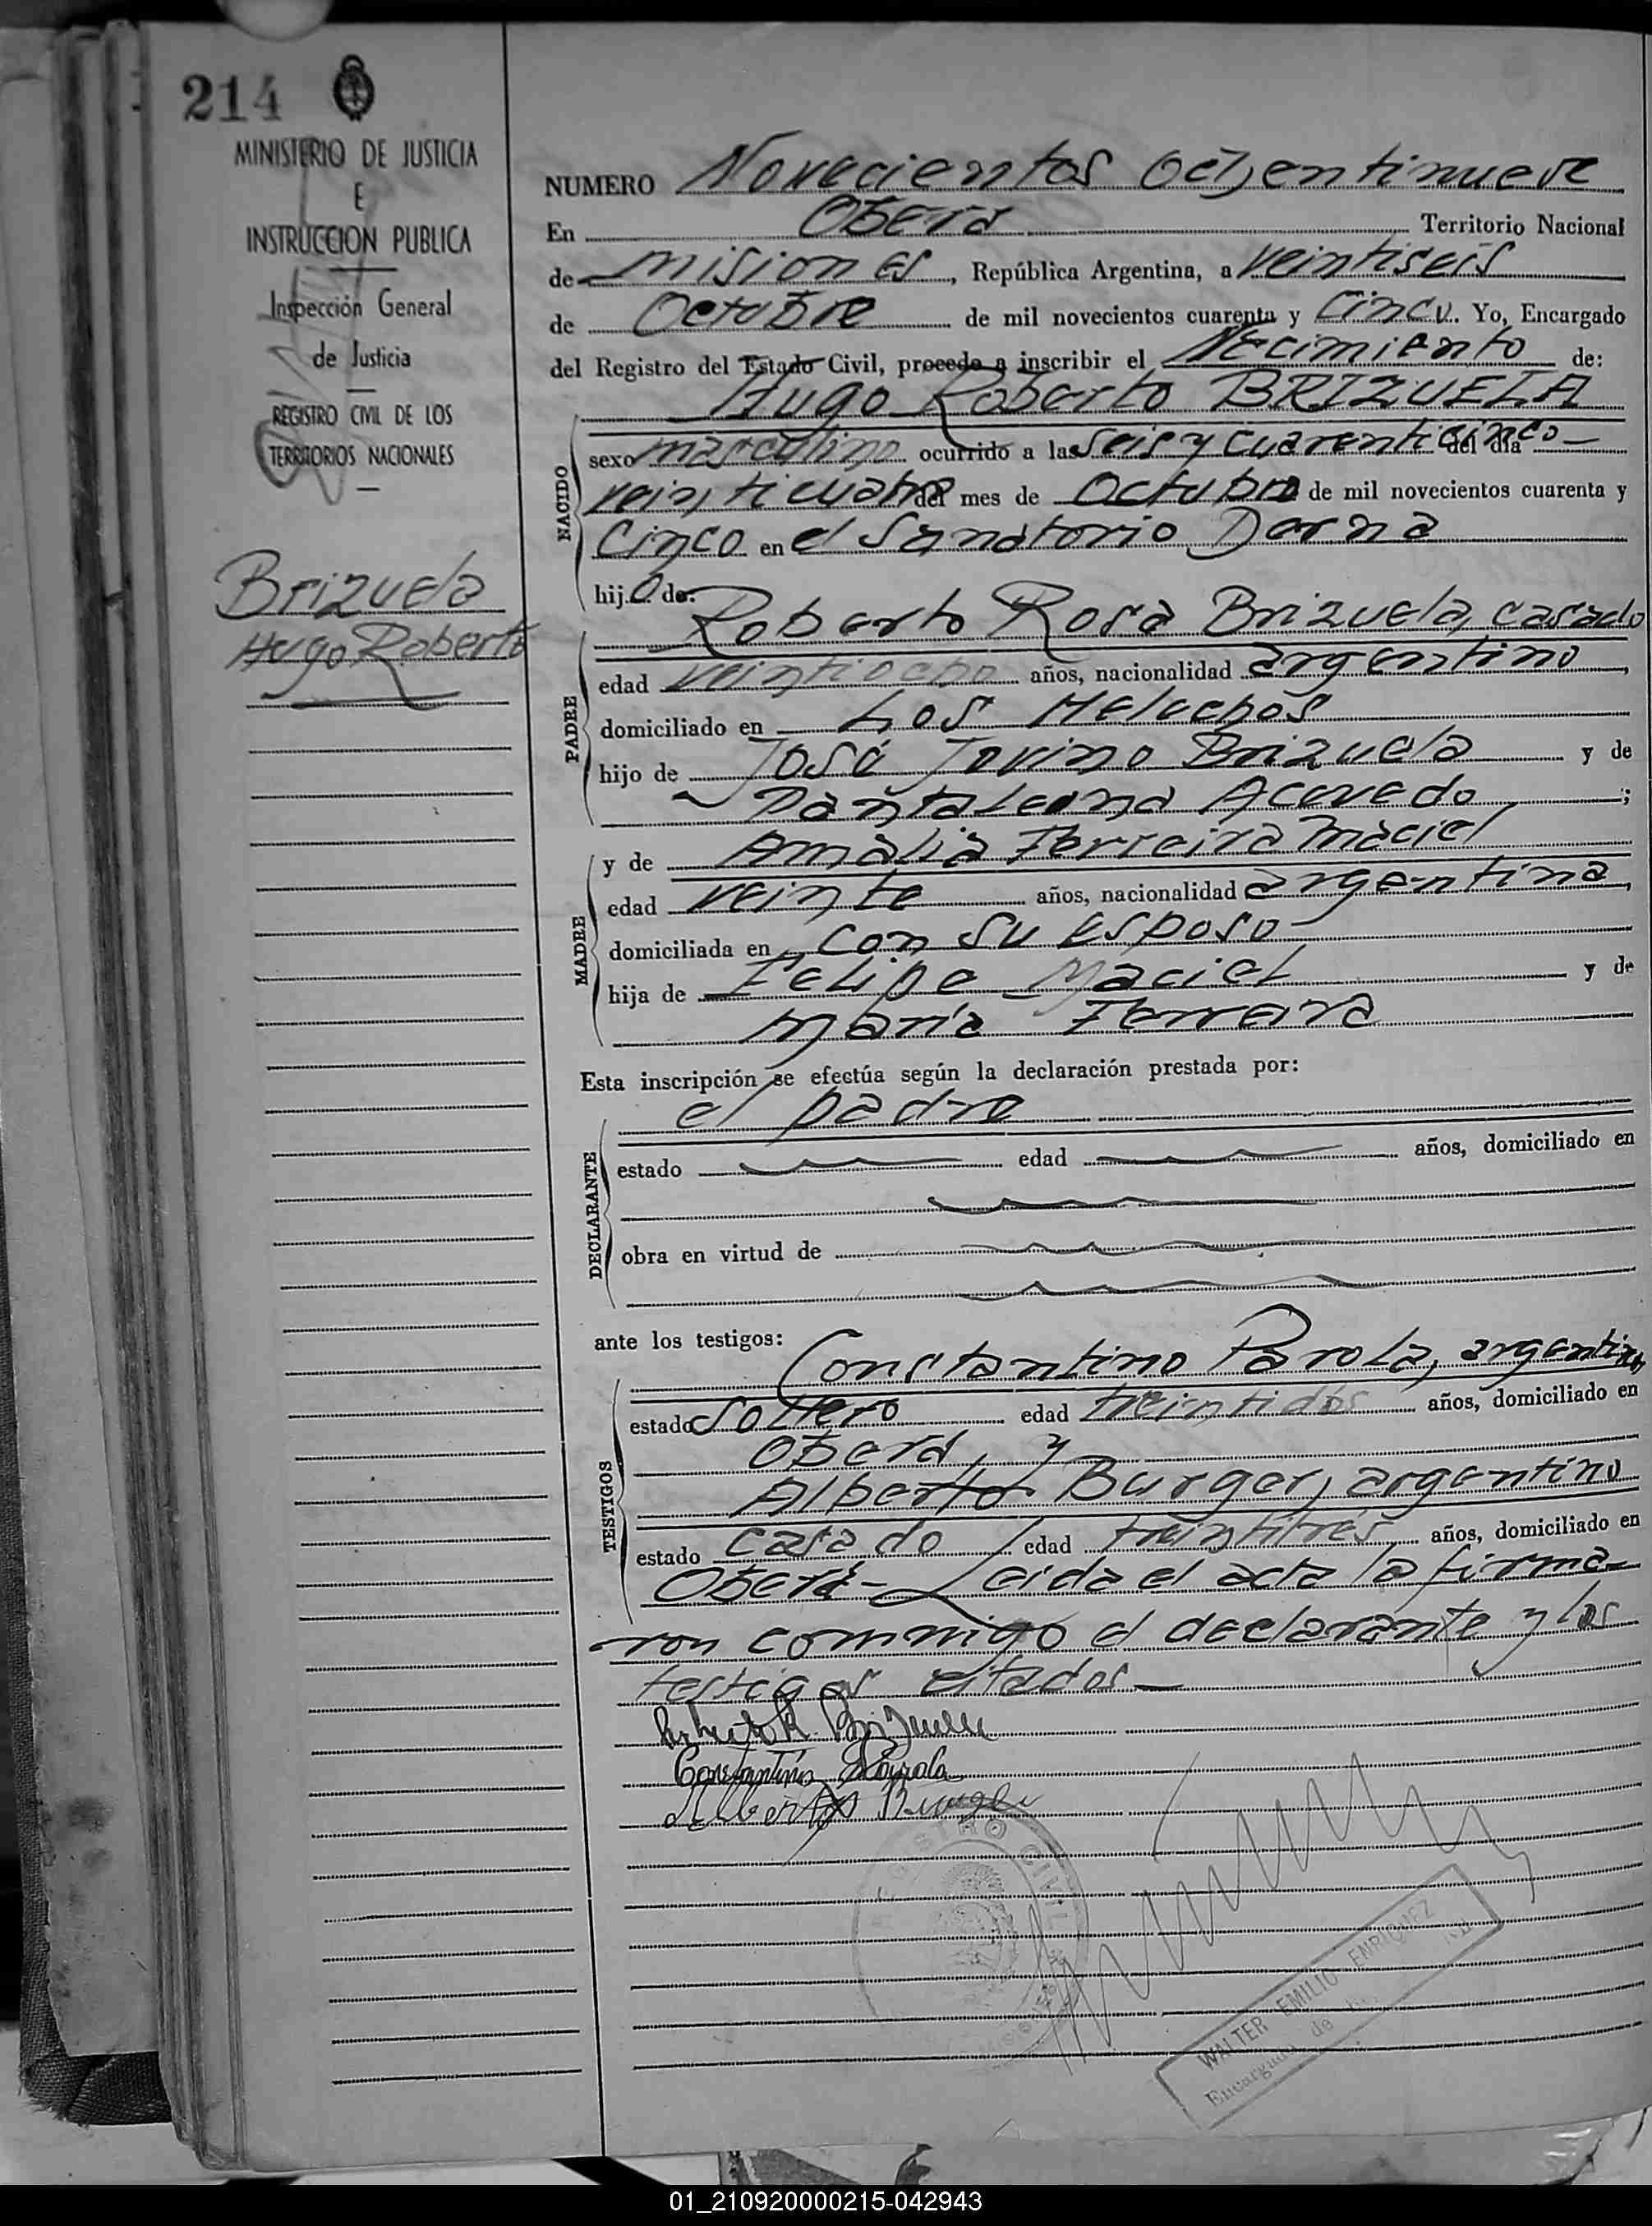 214
MINISTERIO DE JUSTICIA
E
INSTRUCCION PUBLICA
Inspección General
de Justicia
REGISTRO CIVIL DE LOS
TERRITORIOS NACIONALES
Brizuela
Hugo Roberto
NUMERO Novecientos ochentinueve
En Oberá Territorio Nacional
de misiones, República Argentina, a veintiseis
de Octubre de mil novecientos cuarenta y cinco. Yo, Encargado
del Registro del Estado Civil, procedo a inscribir el Nacimiento de:
Hugo Roberto BRIZUELA
NACIDO
sexo masculino ocurrido a las seis y cuarenticinco del día
veinticuatro del mes de Octubre de mil novecientos cuarenta y
cinco en el Sanatorio Derna
hijo de:
Roberto Rosa Brizuela, casado
PADRE
edad veintiocho años, nacionalidad argentino,
domiciliado en Los Helechos
hijo de José Brizuela y de
Pantaleona Acevedo;
MADRE
y de Amalia Ferreira Maciel
edad veinte años, nacionalidad argentina,
domiciliada en con su esposo
hija de Felipe Maciel y de
María Ferreira
Esta inscripción se efectúa según la declaración prestada por:
el padre
DECLARANTE
estado edad años, domiciliado en
obra en virtud de
ante los testigos:
Constantino Parola, argentino,
TESTIGOS
estado soltero edad treintidós años, domiciliado en
Oberá, y
Alberto Burger, argentino
estado casado edad treintitrés años, domiciliado en
Oberá- Leida el acta la firma-
ron commigo el declarante y los
testigos citados
Roberto R. Brizuela
Constantino Parola
Alberto
REGISTRO CIVIL
MISIONES
WALTER EMILIO ENRIQUEZ
Encargado de
01_210920000215-042943